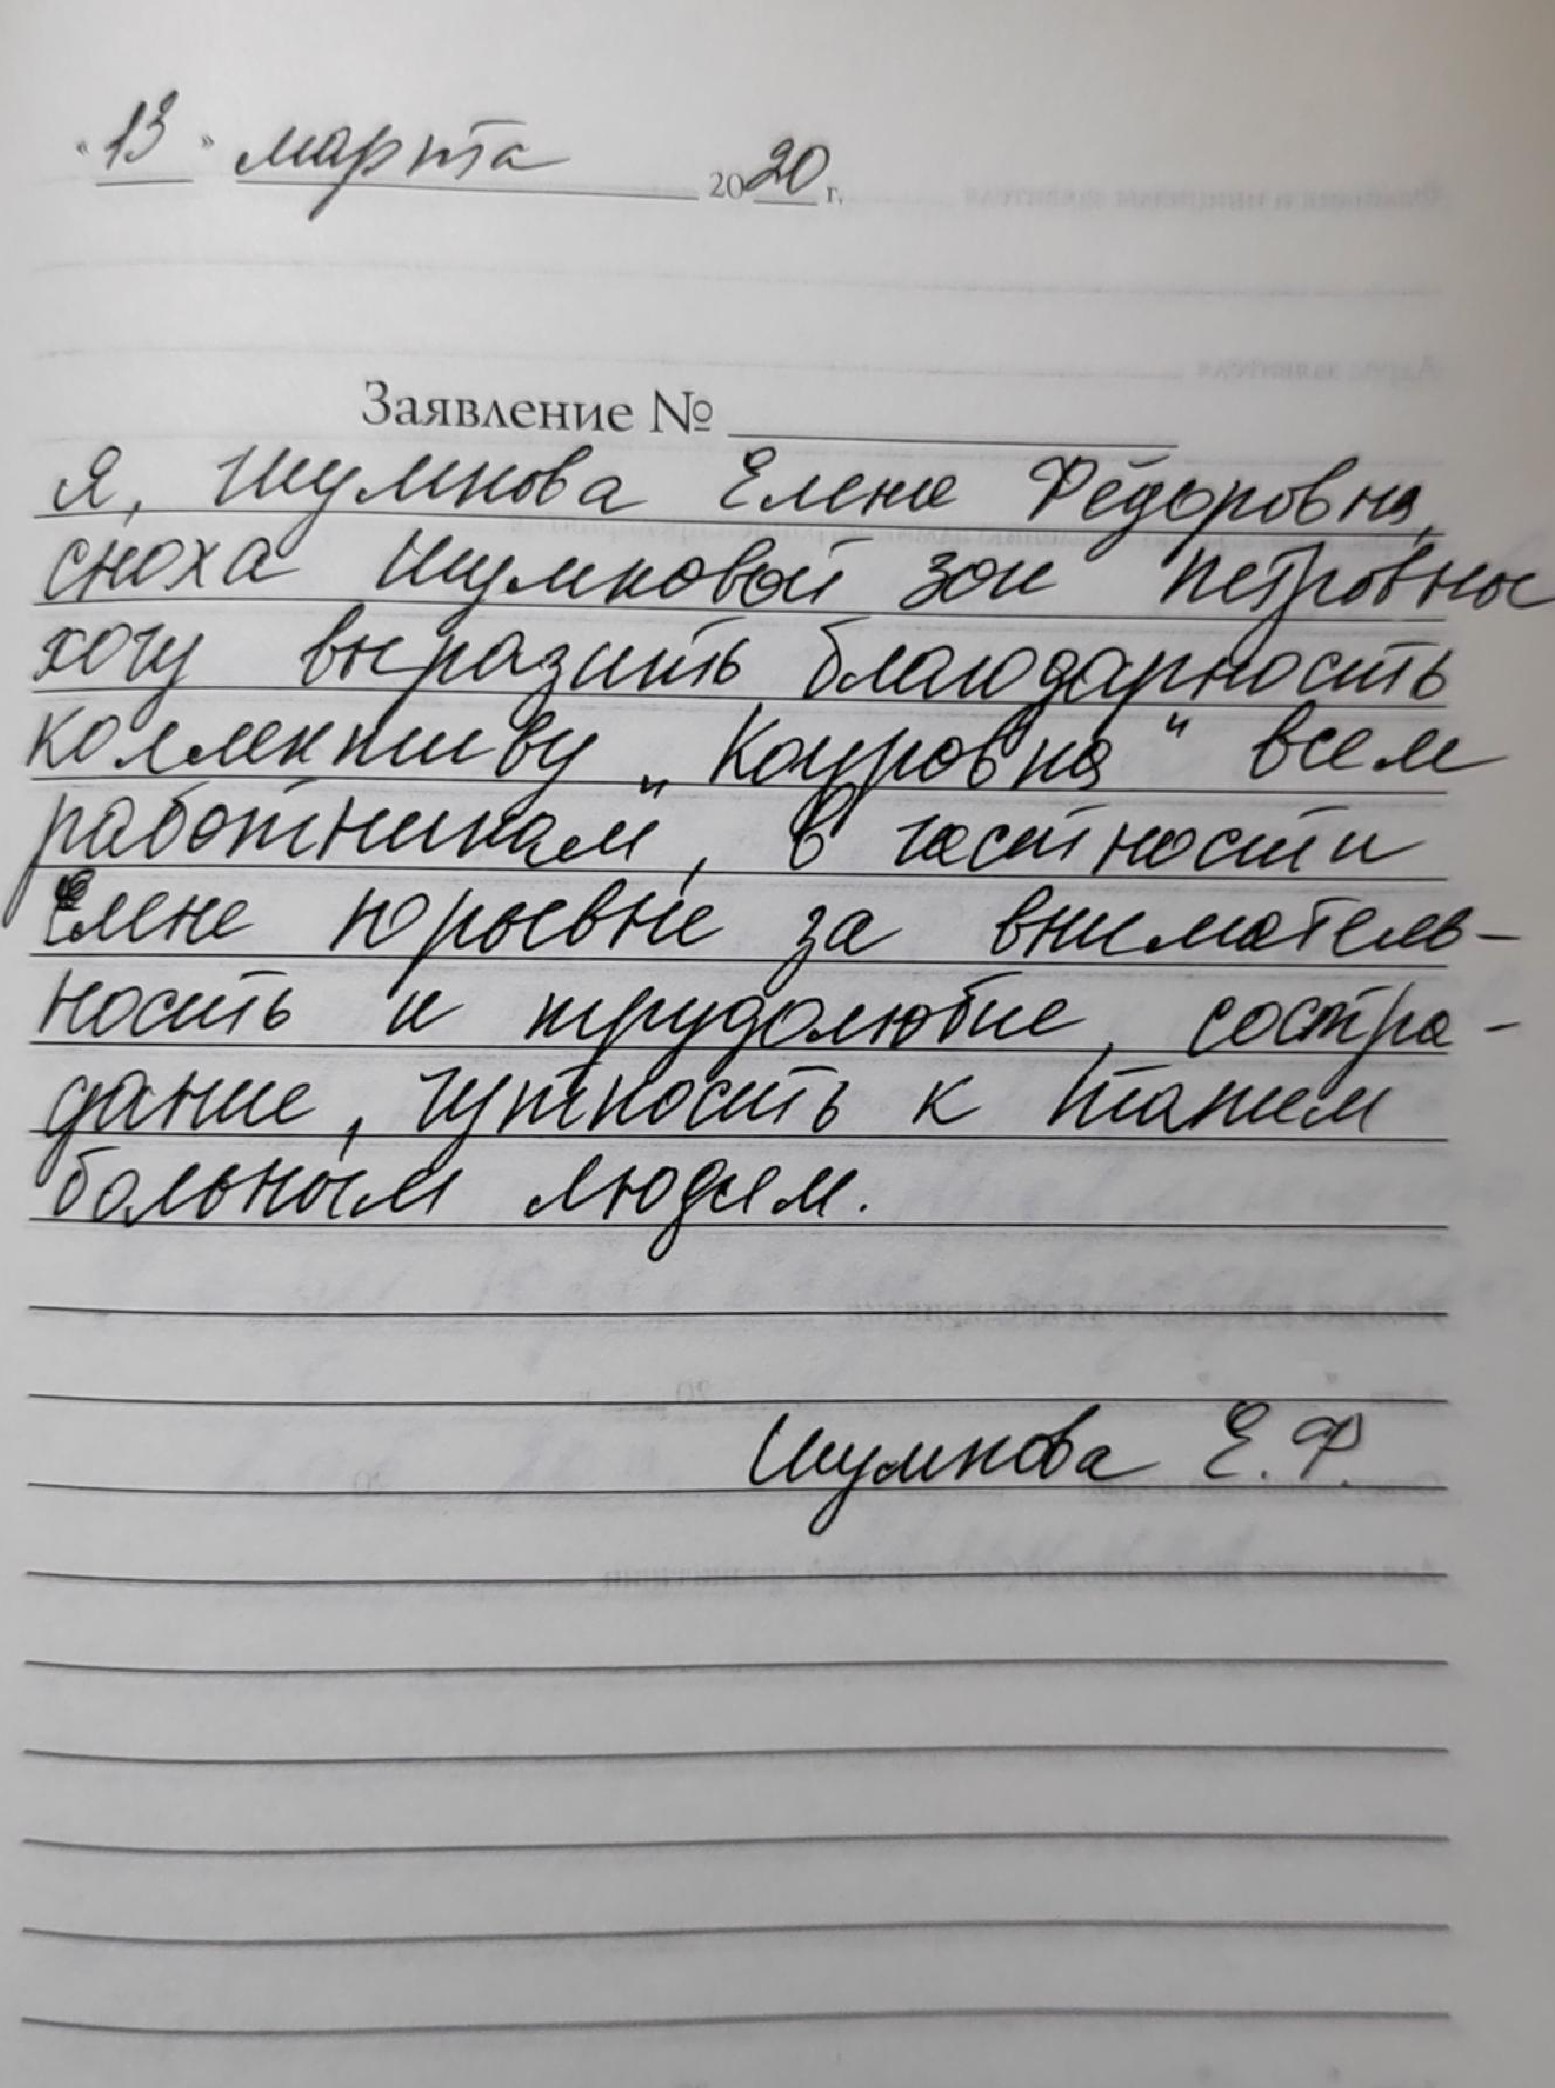 "13" марта 2020 г.
Заявление № 
Я, Шумкова Елена Фёдоровна,
сноха Шумковой Зои Петровны
хочу выразить благодарность
коллективу „Кауровка" всем
работникам, в частности
Елене Юрьевне за вниматель-
ность и трудолюбие, состра-
дание, чуткость к таким
больным людям.
Шумкова Е. Ф.